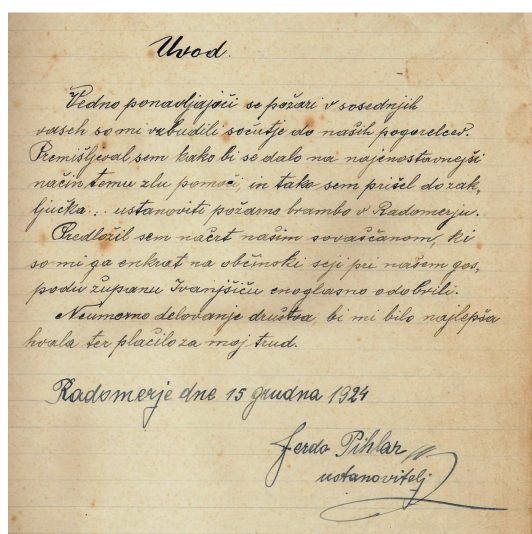 Uvod.
Vedno ponavljajoči se požari v sosednjih
vaseh so mi vzbudili sočutje do naših pogorelcev.
Premišljeval sem kako bi se dalo na najenostavnejši
način temu zlu pomoči, in tako sem prišel do zak-
ljučka: ustanoviti požarno brambo v Radomerju.
Predložil sem načrt našim sovaščanom, ki
so mi ga enkrat na občinski seji pri našem gos,
podu županu Ivanjšiču enoglasno odobrili.
Neumorno delovanje društva, bi mi bilo najlepša
hvala ter plačilo za moj trud.
Radomerje dne 15 grudna 1924
Ferdo Pihlar
ustanovitelj